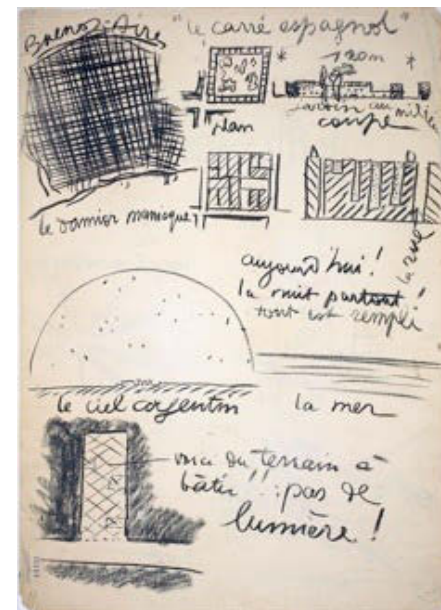 Buenos-Aires
"le carré espagnol"
120m
plan
jardin au milieu
coupe
le damier
aujourd'hui!
la nuit partout!
tout est rempli
la rue
le ciel argentin
la mer
voici du "terrain à
bâtir"!! pas de
lumière!